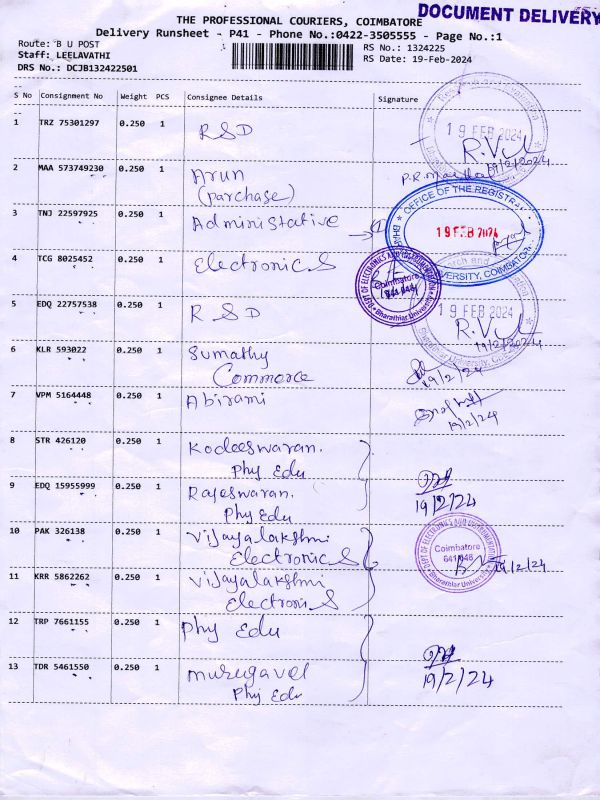 DOCUMENT DELIVERY
THE PROFESSIONAL COURIERS, COIMBATORE
Delivery Runsheet - P41 - Phone No.:0422-3505555 - Page No.:1
Route: B U POST
RS No.: 1324225
Staff: LEELAVATHI
RS Date: 19-Feb-2024
DRS No.: DCJB132422501
S No Consignment No Weight PCS Consignee Details Signature
1 TRZ 75301297 0.250 1 RSD
19 FEB 2024
19/2/2024
2 MAA 573749230 0.250 1 Arun
(parchase)
OFFICE OF THE REGISTRAR
3 TNJ 22597925 0.250 1 Administative
19 FEB 2024
UNIVERSITY, COIMBATORE
4 TCG 8025452 0.250 1 Electronics
Coimbatore
641 046
Bharathiar University
5 EDQ 22757538 0.250 1 RSD
19 FEB 2024
19/2/2024
6 KLR 593022 0.250 1 Sumathy
Commerce
19/2/24
7 VPM 5164448 0.250 1 Abirami
19/2/24
8 STR 426120 0.250 1 Kodeeswaran.
Phy Edu
9 EDQ 15955999 0.250 1 Rajeswaran.
Phy Edu
19/2/24
10 PAK 326138 0.250 1 Vijayalakshmi
Electronics
DEPT OF ELECTRONICS AND COMMUNICATION
Coimbatore
641 046
Bharathiar University
19/2/24
11 KRR 5862262 0.250 1 Vijayalakshmi
Electronis
12 TRP 7661155 0.250 1 Phy Edu
13 TDR 5461550 0.250 1 murugavel
Phy Edu
19/2/24